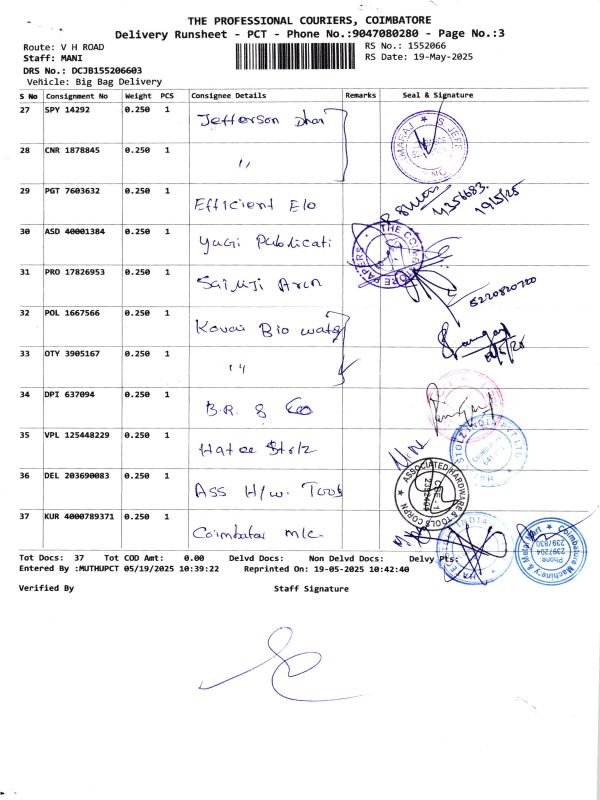 THE PROFESSIONAL COURIERS, COIMBATORE
Delivery Runsheet - PCT - Phone No.:9047080280 - Page No.:3
Route: V H ROAD
RS No.: 1552066
Staff: MANI
RS Date: 19-May-2025
DRS No.: DCJB155206603
Vehicle: Big Bag Delivery
S No Consignment No Weight PCS Consignee Details Remarks Seal & Signature
27 SPY 14292 0.250 1 Jefferson Dhan
28 CNR 1878845 0.250 1 "
29 PGT 7603632 0.250 1 Efficient Elo
19/5/25
30 ASD 40001384 0.250 1 Yugi Publicati
THE COIMBATORE PAPERS
31 PRO 17826953 0.250 1
32 POL 1667566 0.250 1 Kovai Bio
33 OTY 3905167 0.250 1 "
34 DPI 637094 0.250 1 B.R. & Co
35 VPL 125448229 0.250 1
STOLZ INDIA PVT LTD
36 DEL 203690083 0.250 1 Ass H/w. Tools
ASSOCIATED HARDWARE & TOOLS CORPN
CBE - 1
37 KUR 4000789371 0.250 1 Coimbatore M/c.
Coimbatore Machinery & Metal Mart
Phone
2397204
2397830
Tot Docs: 37 Tot COD Amt: 0.00 Delvd Docs: Non Delvd Docs: Delvy Pts:
Entered By :MUTHUPCT 05/19/2025 10:39:22 Reprinted On: 19-05-2025 10:42:40
Verified By Staff Signature